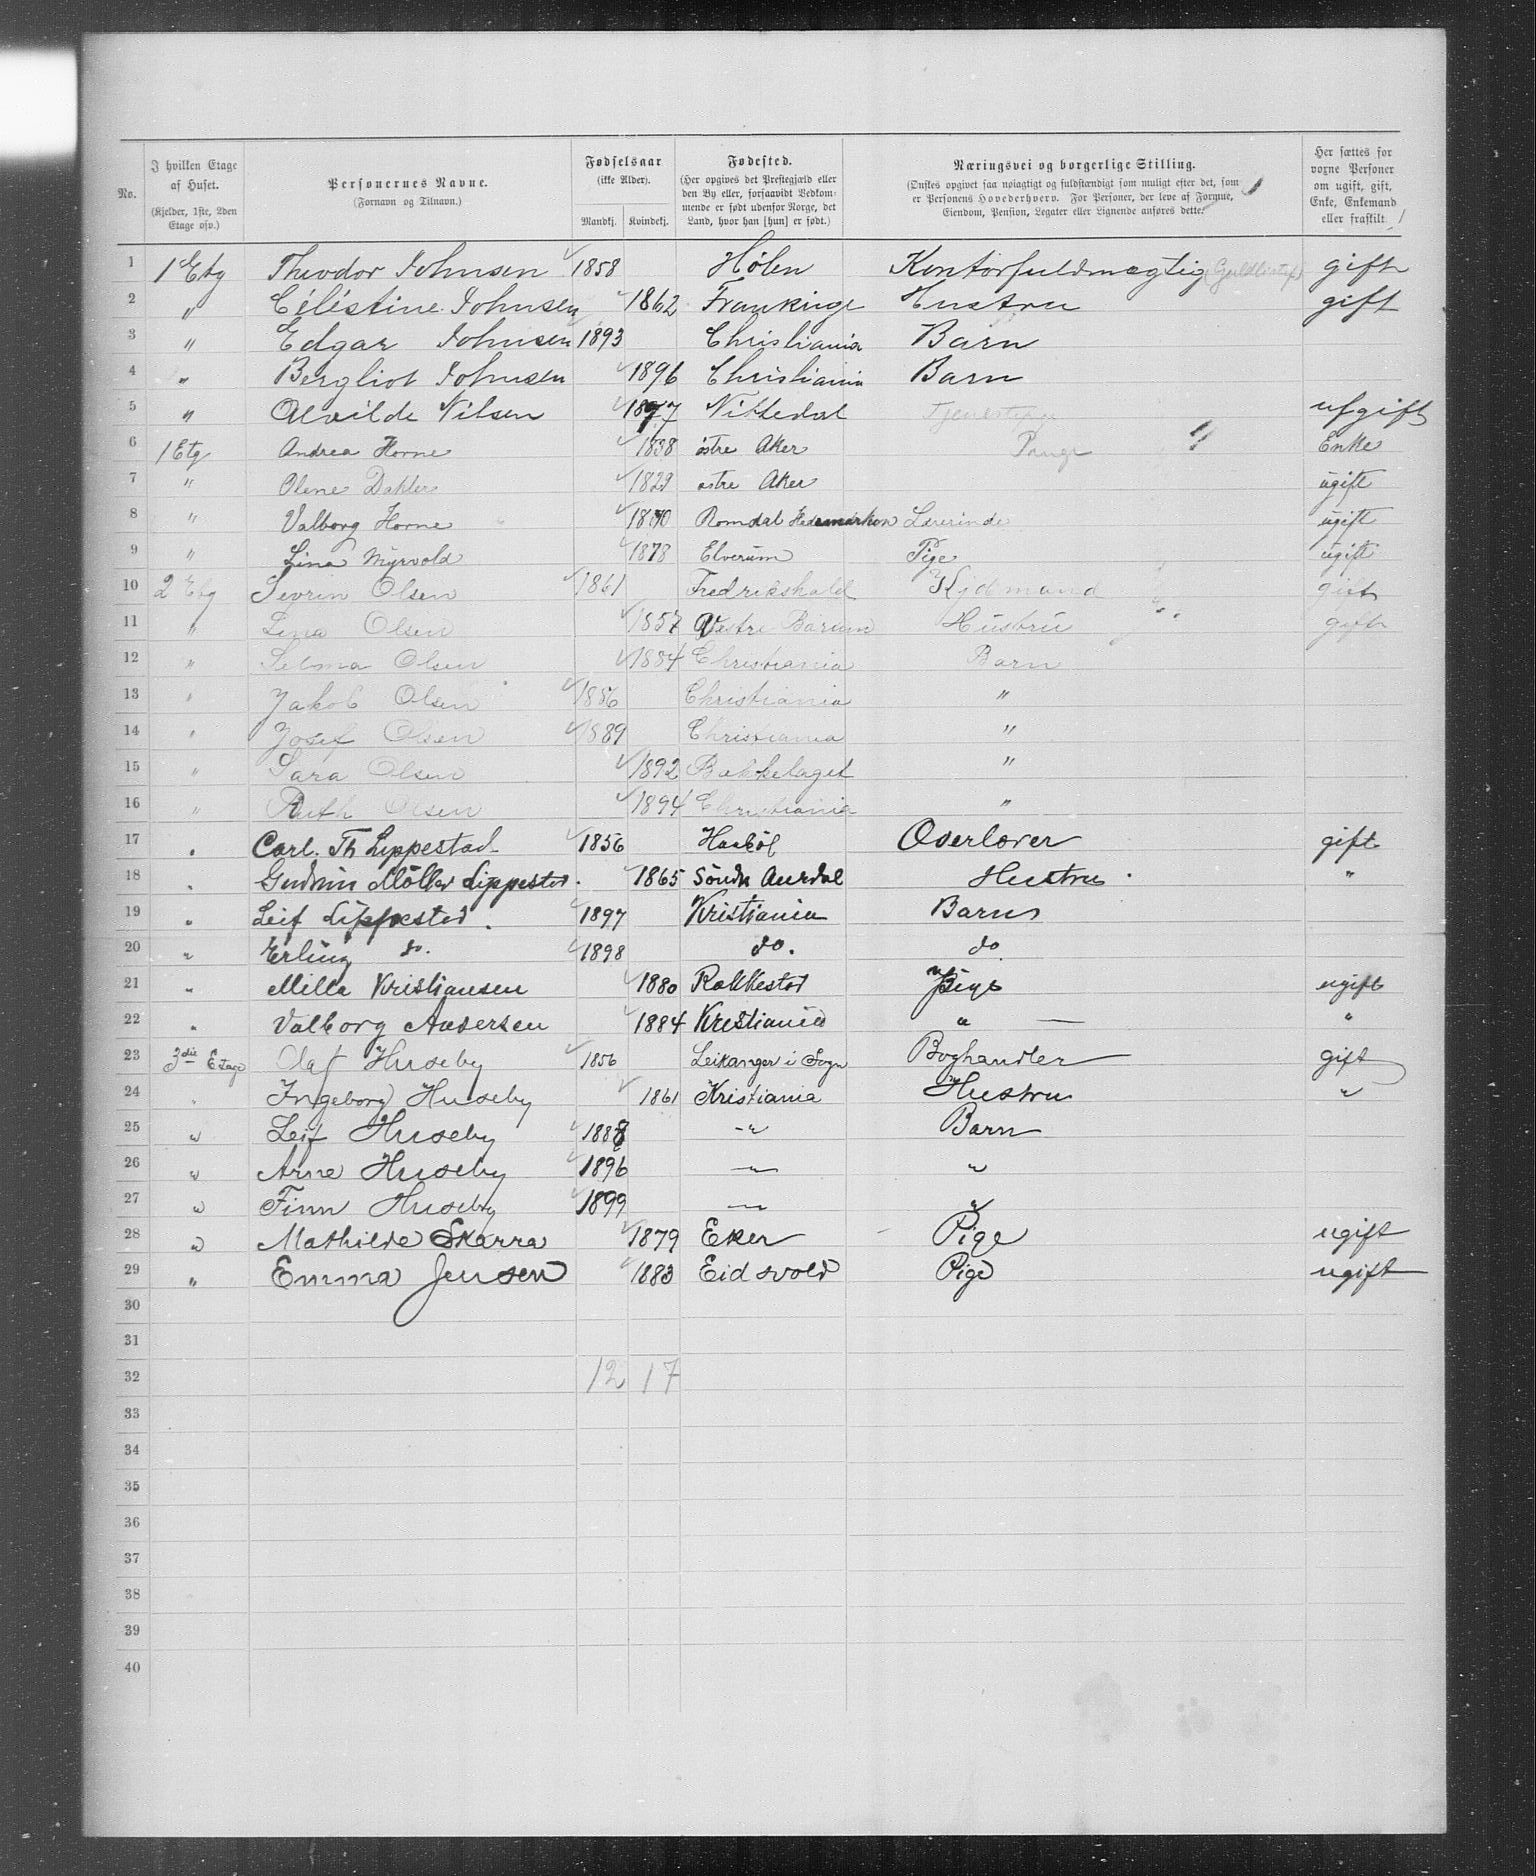 No. | I hvilken Etage af Huset. (Kjelder, 1ste, 2den Etage osv.) | Personernes Navne. (Fornavn og Tilnavn.) | Fødselsaar (ikke Alder). Mandkj. Kvindekj. | Fødested. (Her opgives det Prestegjæld eller den By eller, forsaavidt Vedkommende er født udenfor Norge, det Land, hvor han [hun] er født.) | Næringsvei og borgerlige Stilling. (Ønskes opgivet saa nøiagtigt og fuldstændigt som muligt efter det, som er Personens Hovederhverv. For Personer, der leve af Formue, Eiendom, Pension, Legater eller Lignende anføres dette.) | Her sættes for voxne Personer om ugift, gift, Enke, Enkemand eller fraskilt.
1 1 Etg Theodor Johnsen 1858 Hølen Kontorfuldmægtig gift
2 " Céléstine Johnsen 1862 Frankrige Hustru gift
3 " Edgar Johnsen 1893 Christiania Barn
4 " Bergliot Johnsen 1896 Christiania Barn
5 " Alvilde Nilsen 1877 Nittedal Tjenestepige ugift
6 1 Etg Andrea Horne 1838 østre Aker Enke
7 " Olene Dahler 1829 østre Aker ugift
8 " Valborg Horne 1870 Romdal Hedemarken Lærerinde ugift
9 " Lina Myrvold 1878 Elverum Pige ugift
10 2 Etg Sevrin Olsen 1861 Fredrikshald gift
11 " Lina Olsen 1857 Vestre Bærum Hustru gift
12 " Selma Olsen 1884 Christiania Barn
13 " Jakob Olsen 1886 Christiania "
14 " Josef Olsen 1889 Christiania "
15 " Sara Olsen 1892 Bækkelaget "
16 " Ruth Olsen 1894 Christiania "
17 " Carl. Th Lippestad 1856 Haabøl Overlærer gift
18 " Gudrun Möller Lippestad. 1865 Söndr Aurdal Hustru "
19 " Leif Lippestad. 1897 Kristiania Barn
20 " Erling do. 1898 do. do
21 " Milla Kristiansen 1880 Rakkestad Pige ugift
22 " Valborg Andersen 1884 Kristiania " — "
23 3die Etage Olaf Huseby 1856 Leikanger i Sogn Boghandler gift
24 " Ingeborg Huseby 1861 Kristiania Hustru "
25 " Leif Huseby 1888 -"- Barn
26 " Arne Huseby 1896 -"- "
27 " Finn Huseby 1899 -"- "
28 " Mathilde Skarra 1879 Eker Pige ugift
29 " Emma Jensen 1883 Eidsvold Pige ugift
30
31
32 12 17
33
34
35
36
37
38
39
40